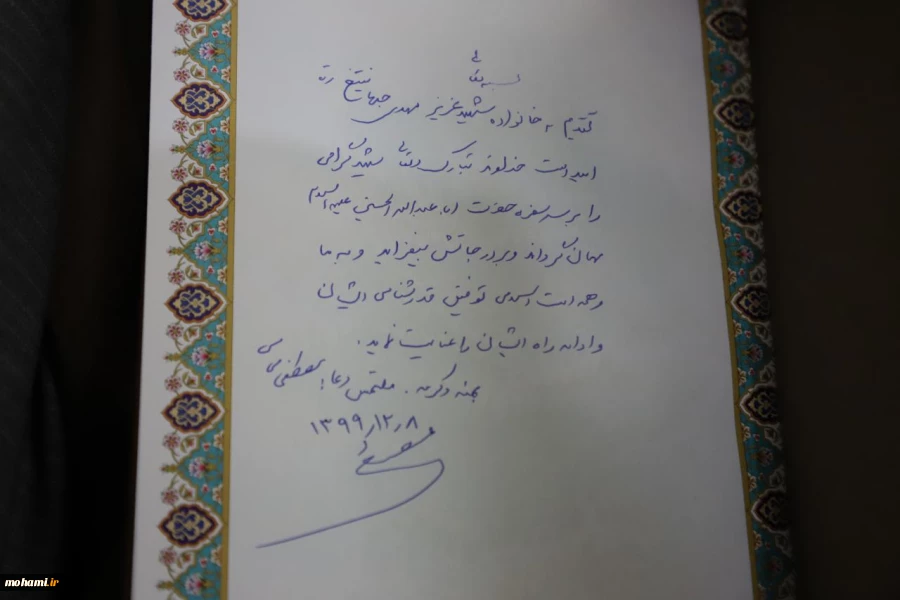 بسمه تعالی
تقدیم به خانواده شهید عزیز مهدی جهان تیغ ره
امید است خداوند تبارک و تعالی شهید گرامی
را بر سر سفره حضرت ابا عبدالله الحسین علیه السلام
مهمان گرداند و بر درجاتش بیفزاید و به ما
و همه امت اسلامی توفیق قدرشناسی ایشان
و ادامه راه ایشان را عنایت نماید.
بمنه و کرمه. ملتمس دعا؛ مصطفی
۱۳۹۹/۱۲/۸
mohami.ir